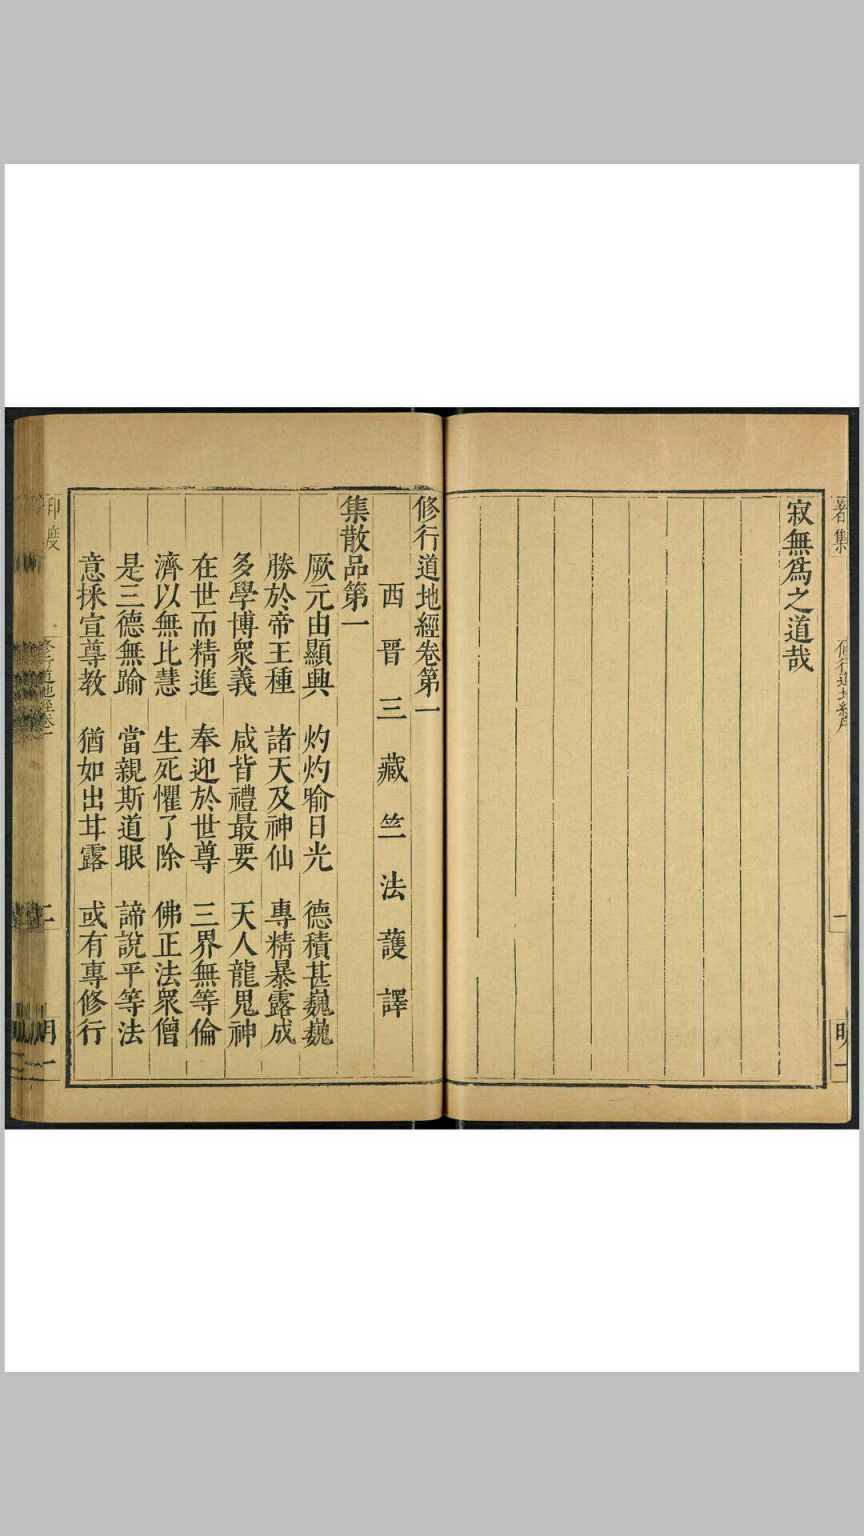 寂無爲之道哉
修行道地經卷第一
西晉三藏竺法護譯
集散品第一
厥元由顯興 灼灼喻日光 德積甚巍巍
勝於帝王種 諸天及神仙 專精暴露成
多學博衆義 咸皆禮最要 天人龍鬼神
在世而精進 奉迎於世尊 三界無等倫
濟以無比慧 生死懼了除 佛正法衆僧
是三德無踰 當親斯道眼 諦說平等法
意採宣尊教 猶如出甘露 或有專修行